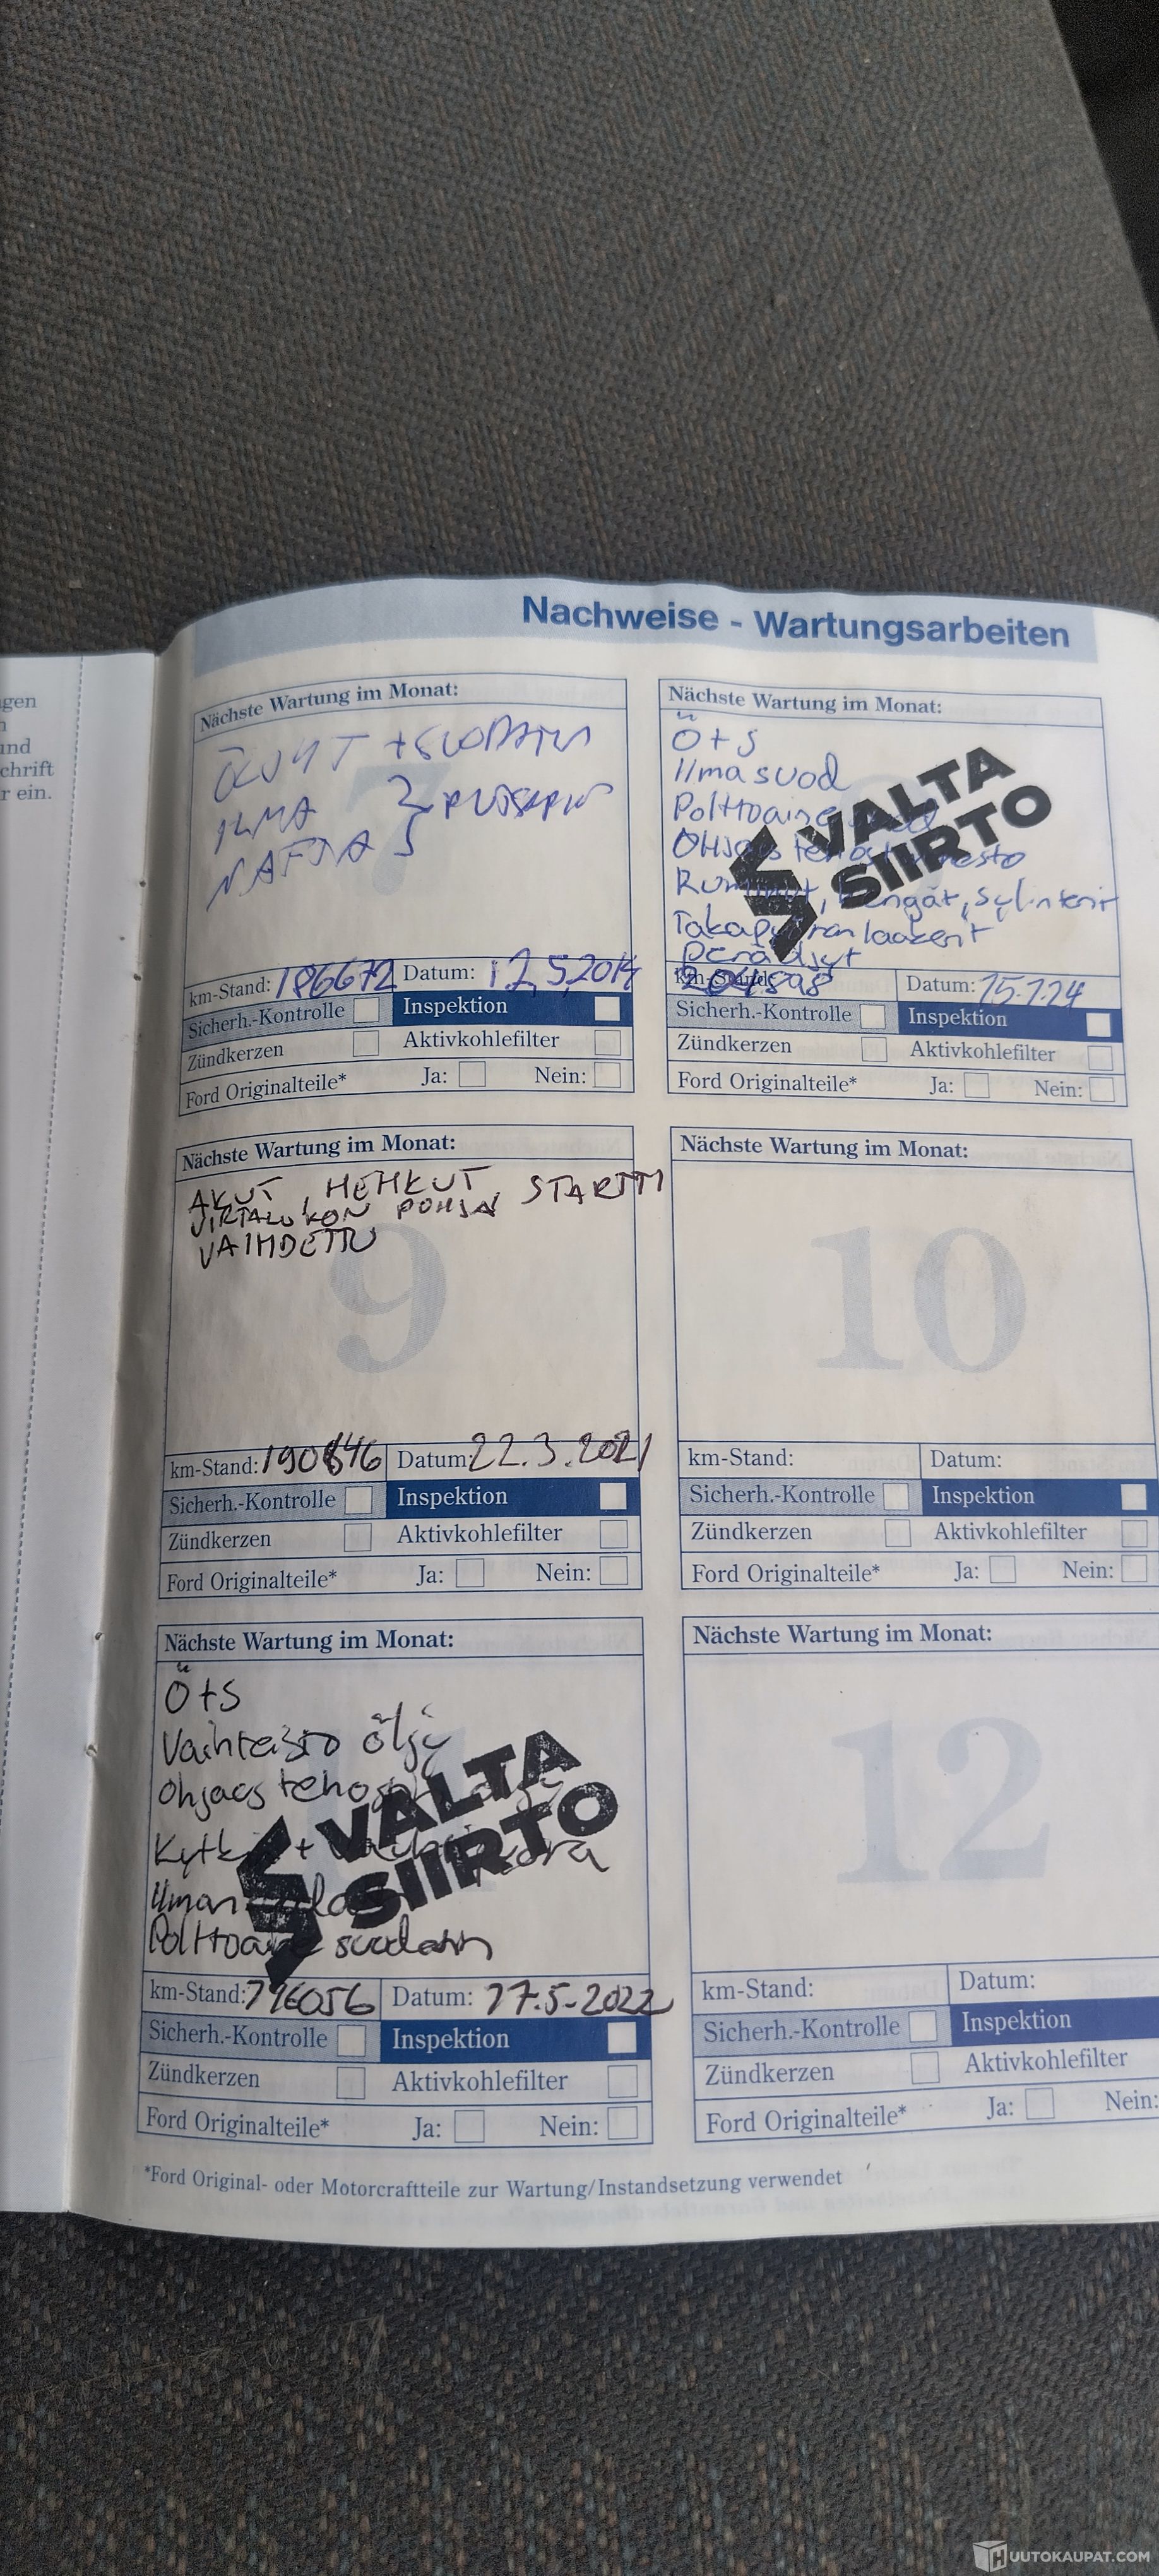 gen
und
chrift
r ein.
Nachweise - Wartungsarbeiten
Nächste Wartung im Monat:
ÖLJYT +SUODATIN
ILMA
NAFTA
7
km-Stand: 186672 Datum: 12.5.2014
Sicherh.-Kontrolle Inspektion
Zündkerzen Aktivkohlefilter
Ford Originalteile* Ja: Nein:
Nächste Wartung im Monat:
Ö+S
Ilmasuod
Polttoaine
VALTA
SIIRTO
Takapyörän laakerit
Peräöljyt
km-Stand: 204898 Datum: 15.7.24
Sicherh.-Kontrolle Inspektion
Zündkerzen Aktivkohlefilter
Ford Originalteile* Ja: Nein:
Nächste Wartung im Monat:
AKUT, HEHKUT, STARTTI
VIRTALUKON POHJA
VAIHDETTU
9
km-Stand: 190846 Datum: 22.3.2021
Sicherh.-Kontrolle Inspektion
Zündkerzen Aktivkohlefilter
Ford Originalteile* Ja: Nein:
Nächste Wartung im Monat:
10
km-Stand: Datum:
Sicherh.-Kontrolle Inspektion
Zündkerzen Aktivkohlefilter
Ford Originalteile* Ja: Nein:
Nächste Wartung im Monat:
Ö+S
Vaihteisto öljy
VALTA
SIIRTO
Polttoaine suodatin
km-Stand: 196056 Datum: 17.5.2022
Sicherh.-Kontrolle Inspektion
Zündkerzen Aktivkohlefilter
Ford Originalteile* Ja: Nein:
Nächste Wartung im Monat:
12
km-Stand: Datum:
Sicherh.-Kontrolle Inspektion
Zündkerzen Aktivkohlefilter
Ford Originalteile* Ja: Nein:
*Ford Original- oder Motorcraftteile zur Wartung/Instandsetzung verwendet
HUUTOKAUPAT.COM